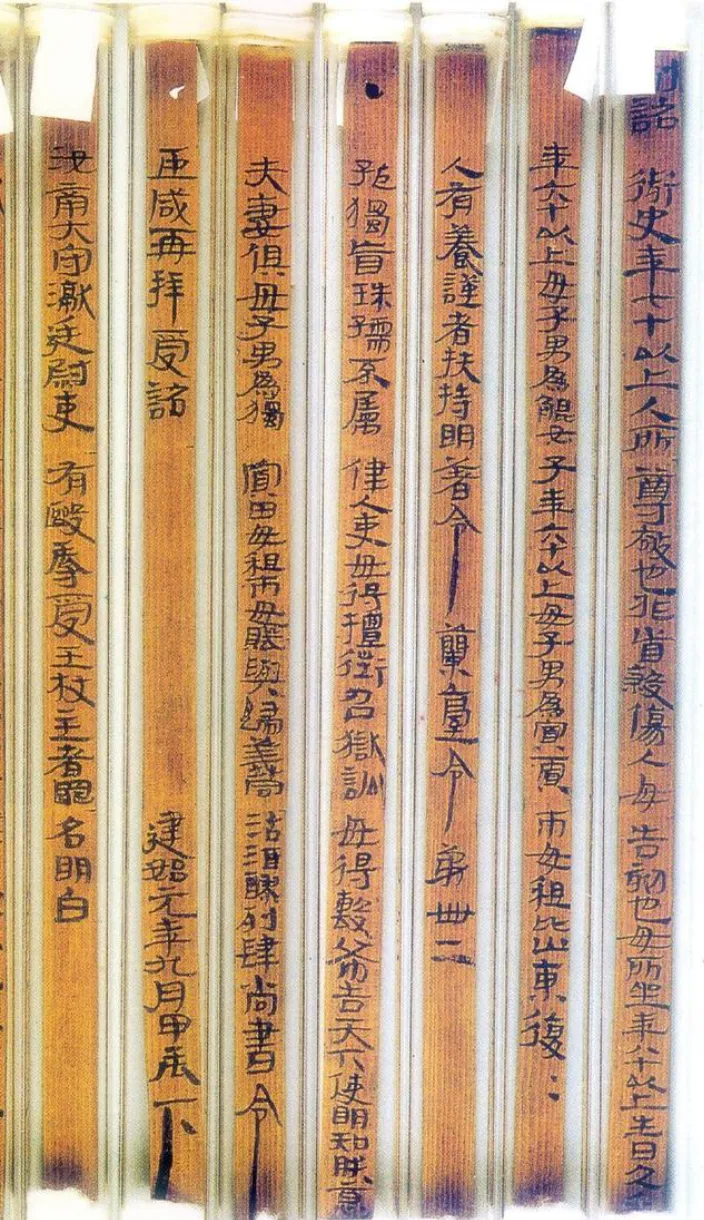 制詔 御史年七十以上人所尊敬也非首殺傷人毋告劾也毋所坐年八十以上生日久乎
年六十以上毋子男為鯤女子年六十以上毋子男為寡賈市毋租比山東復=
人有養謹者扶持明著令 蘭臺令第卌二
孤獨盲珠孺不屬 律人吏毋得擅徵召獄訟毋得毄布告天下使明知朕意
夫妻俱毋子男為獨 寡田毋租市毋賦與歸義同 沽酒醪列肆尚書令
臣咸再拜 受詔 建始元年九月甲辰下
汝南大守讞廷尉吏 有毆辱受王杖主者罪名明白